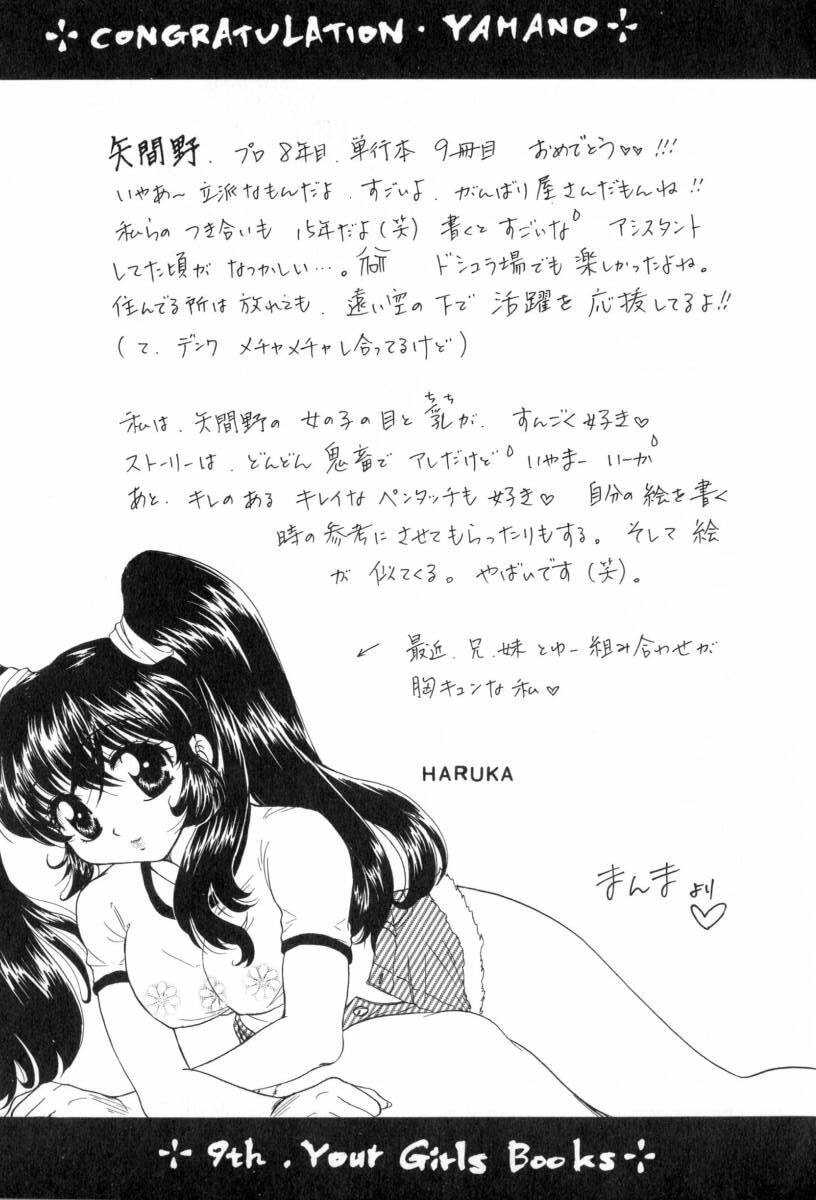 CONGRATULATION・YAMANO
矢間野、プロ8年目、単行本 9冊目 おめでとう♡♡!!!
いやあ〜 立派なもんだよ、すごいよ、がんばり屋さんだもんね!!
私らの つき合いも 15年だよ(笑) 書くと すごいな アシスタント
してた頃が なつかしい…。 ドシュラ場でも 楽しかったよね。
住んでる所は 放れても、遠い空の下で 活躍を 応援してるよ!!
(て、デンワ メチャメチャし合ってるけど)
私は、矢間野の 女の子の目と 乳(ちち)が、すんごく好き♡
ストーリーは、どんどん 鬼畜で アレだけど いやまー いーか
あと、キレのある キレイな ペンタッチも 好き♡ 自分の絵を書く
時の参考に させてもらったりもする。そして 絵
が 似てくる。やばいです(笑)。
← 最近、兄、妹 とゆー組み合わせが
胸キュンな私♡
HARUKA
まんま より♡
9th . Your Girls Books